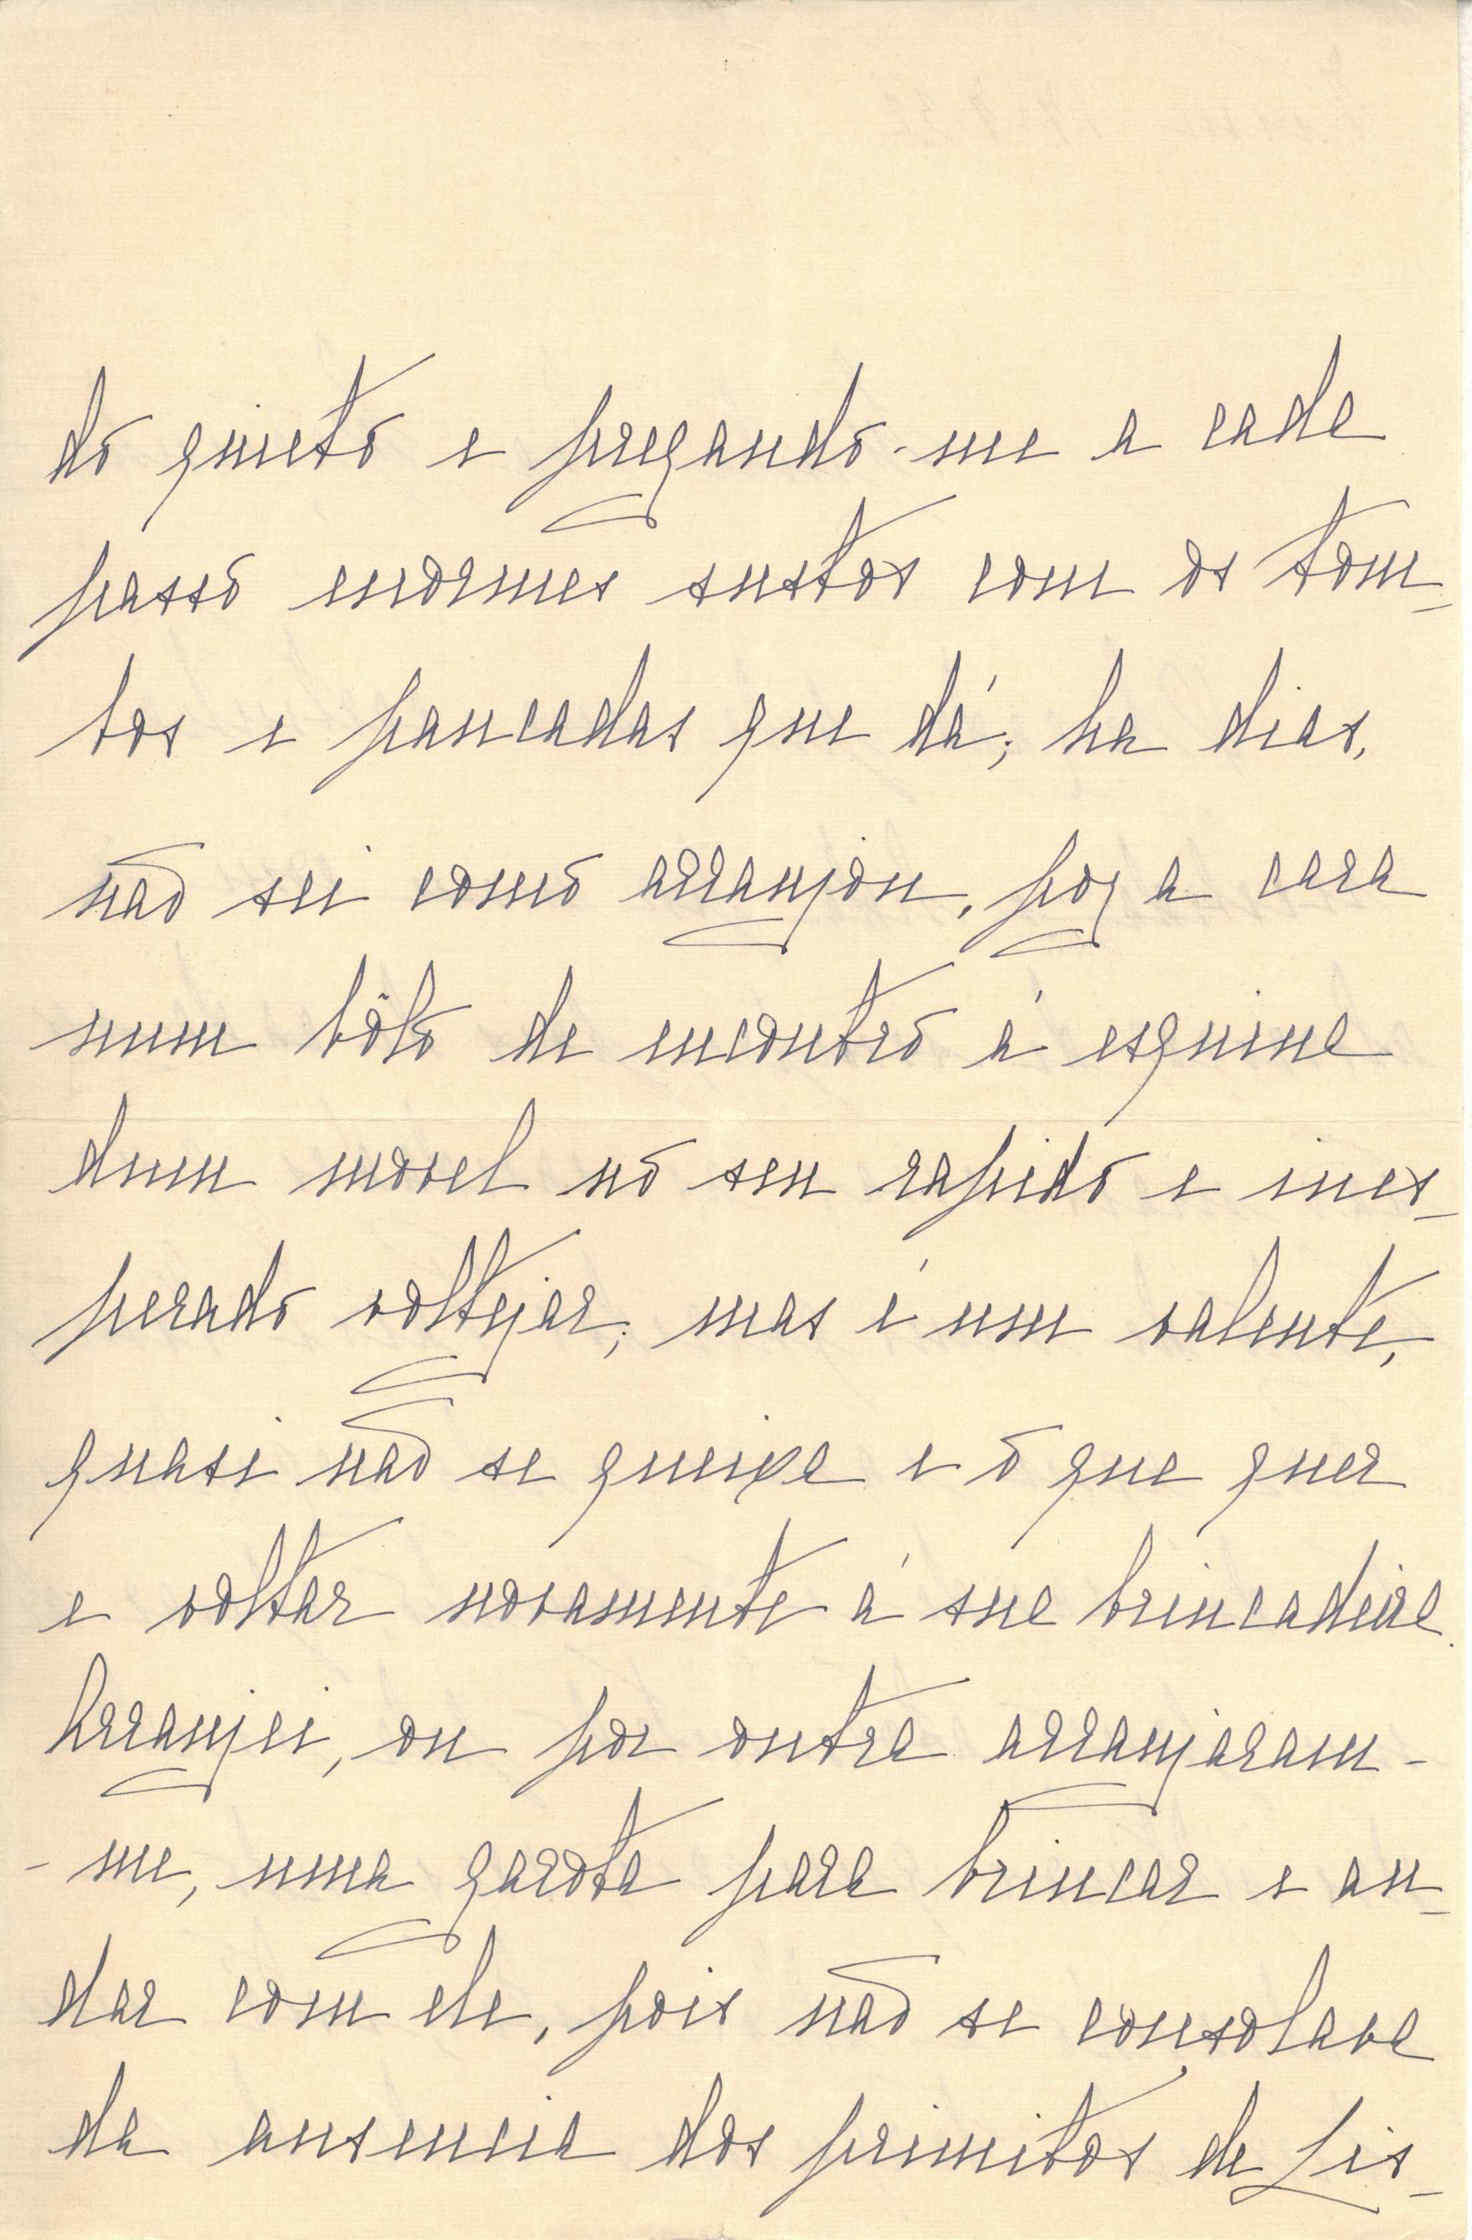 do quieto e pregando-me a cada
passo enormes sustos com os tom-
bos e pancadas que dá; ha dias,
não sei como arranjou, poz a cara
num bôlo de encontro á esquina
dum movel no seu rapido e ines-
perado voltejar; mas é um valente,
quasi não se queixa e o que quer
e voltar novamente á sua brincadeira.
Arranjei, ou por outra arranjaram-
-me, uma garota para brincar e an-
dar com ele, pois não se consolava
da ausencia dos primitos de Lis-